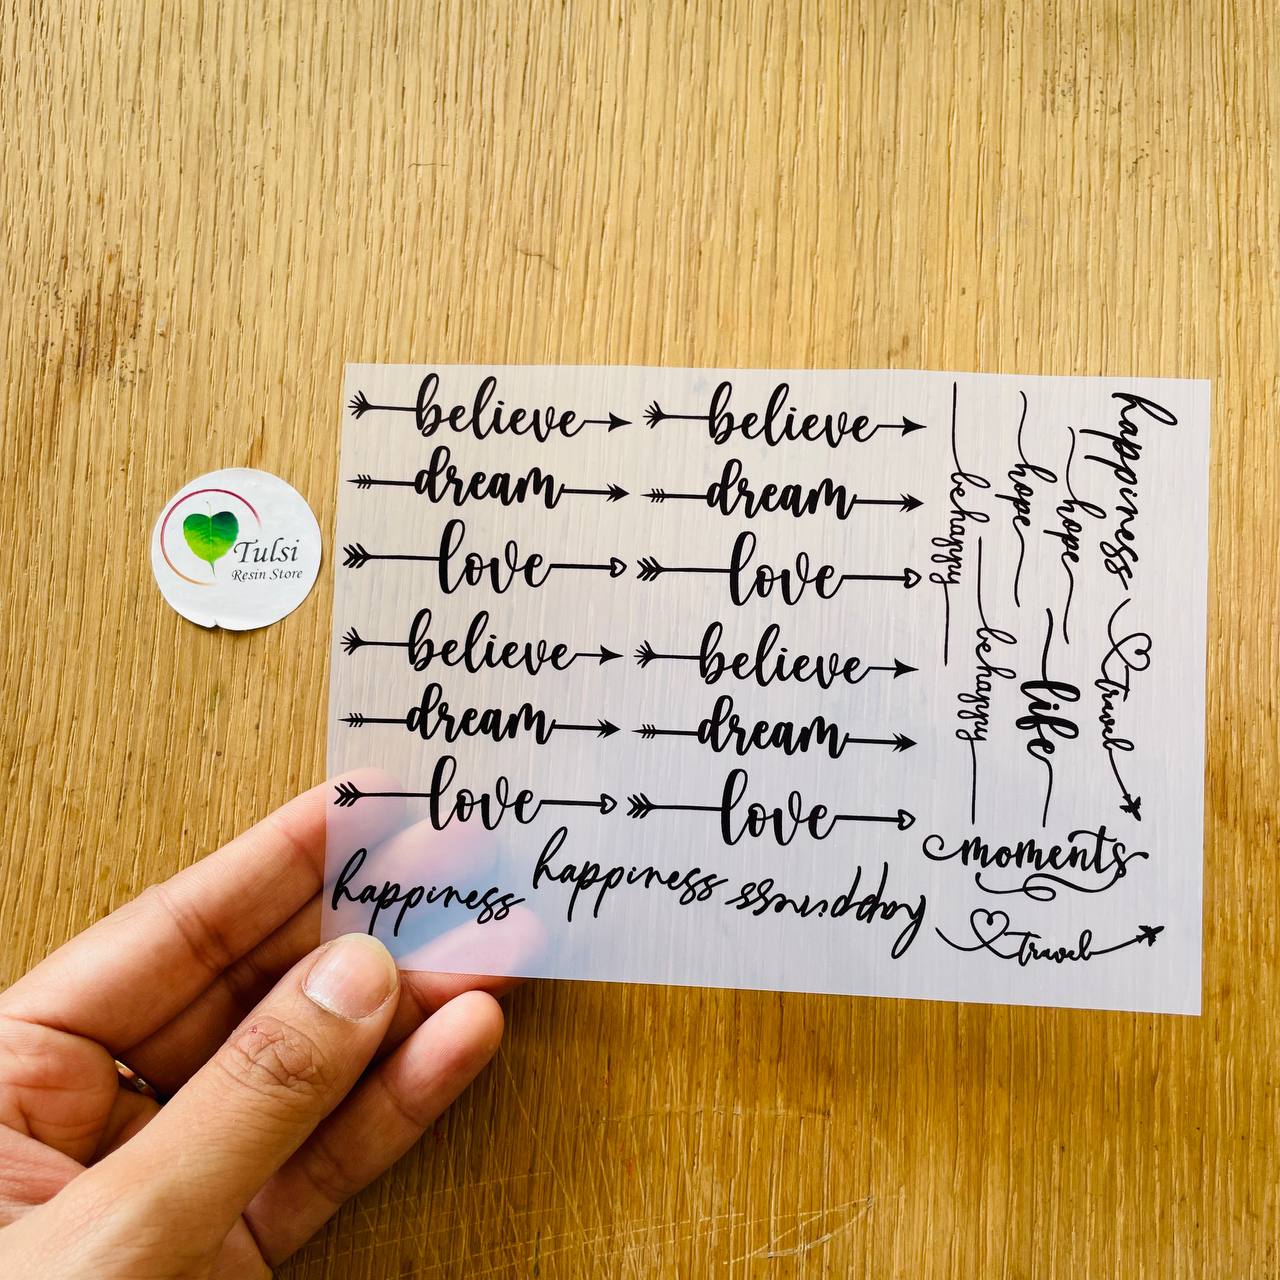 Tulsi
Resin Store
believe believe
dream dream
love love
believe believe
dream dream
love love
happiness happiness happiness
be happy
be happy
hope
hope
life
happiness
travel
moments
travel